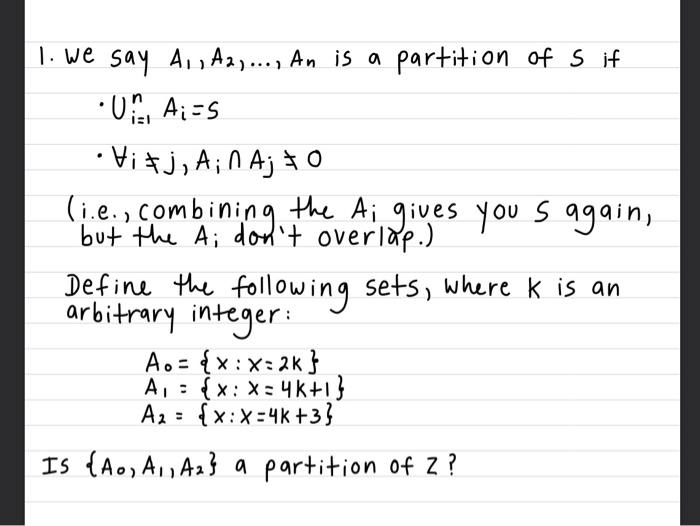 1. We say A₁, A₂, ..., Aₙ is a partition of S if
• ⋃ⁿᵢ₌₁ Aᵢ = S
• ∀i ≠ j, Aᵢ ∩ Aⱼ ≠ 0
(i.e., combining the Aᵢ gives you S again,
but the Aᵢ don't overlap.)
Define the following sets, where k is an
arbitrary integer:
A₀ = {x : x = 2k}
A₁ = {x : x = 4k+1}
A₂ = {x : x = 4k+3}
Is {A₀, A₁, A₂} a partition of Z?